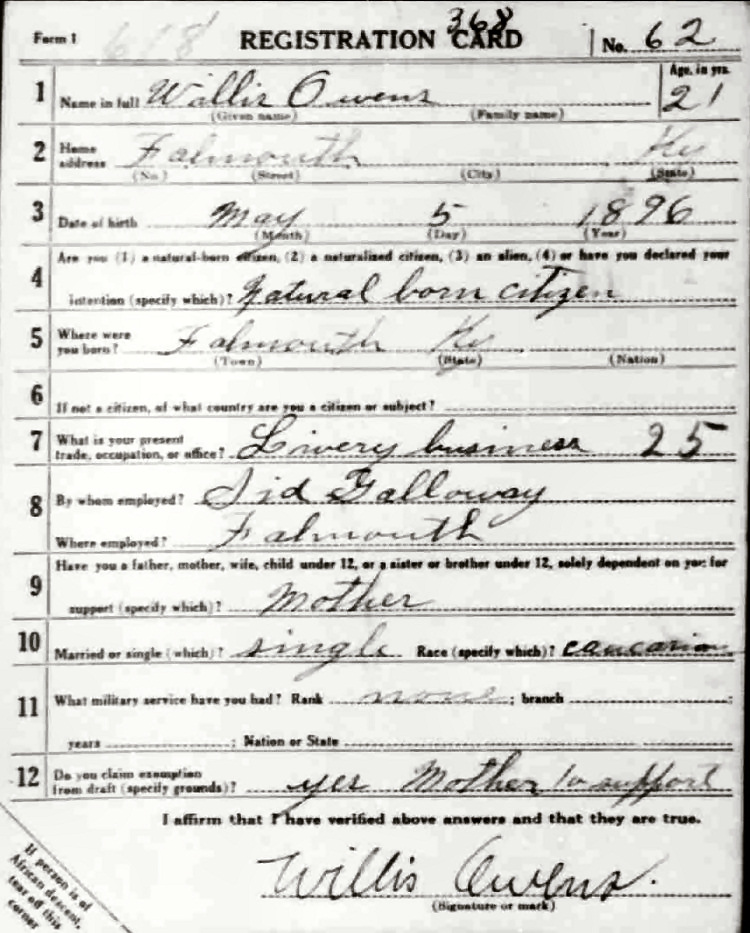 368
Form 1 618 REGISTRATION CARD No. 62
1 Name in full Willis Owens Age, in yrs. 21
(Given name) (Family name)
2 Home address Falmouth Ky
(No.) (Street) (City) (State)
3 Date of birth May 5 1896
(Month) (Day) (Year)
4 Are you (1) a natural-born citizen, (2) a naturalized citizen, (3) an alien, (4) or have you declared your
intention (specify which)? Natural born citizen
5 Where were you born? Falmouth Ky
(Town) (State) (Nation)
6 If not a citizen, of what country are you a citizen or subject?
7 What is your present trade, occupation, or office? Livery business 25
8 By whom employed? Sid Galloway
Where employed? Falmouth
9 Have you a father, mother, wife, child under 12, or a sister or brother under 12, solely dependent on you for
support (specify which)? Mother
10 Married or single (which)? single Race (specify which)? caucasian
11 What military service have you had? Rank none ; branch ;
years ; Nation or State
12 Do you claim exemption from draft (specify grounds)? yes Mother to support
I affirm that I have verified above answers and that they are true.
Willis Owens.
(Signature or mark)
If person is of
African descent,
tear off this
corner